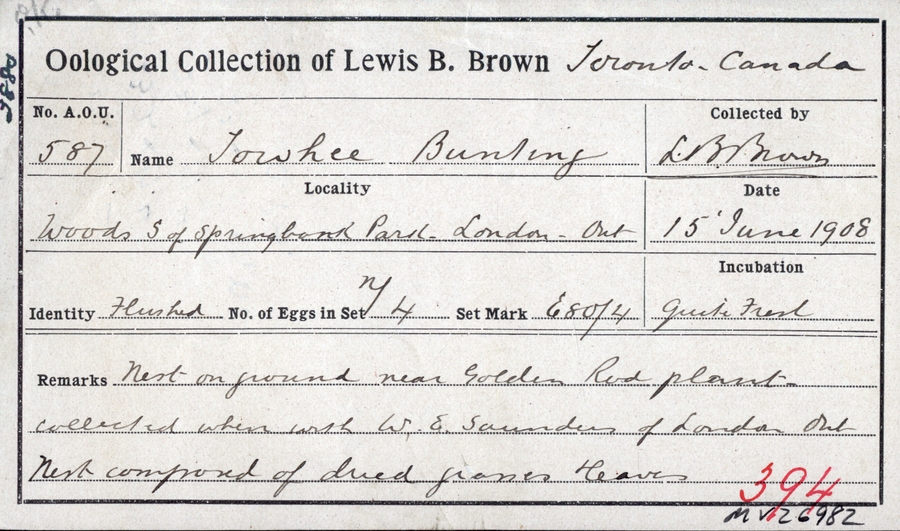 Oological Collection of Lewis B. Brown Toronto. Canada
No. A.O.U. Collected by
587 Name Towhee Bunting L.B.Brown
Locality Date
Woods S of Springbank Park - London - Ont 15 June 1908
Incubation
Identity Flushed No. of Eggs in Set n/4 Set Mark E80/4 Quite Fresh
Remarks Nest on ground near Golden Rod plant -
collected when with W. E. Saunders of London Ont
Nest composed of dried grasses & leaves
394
MVZ 6982